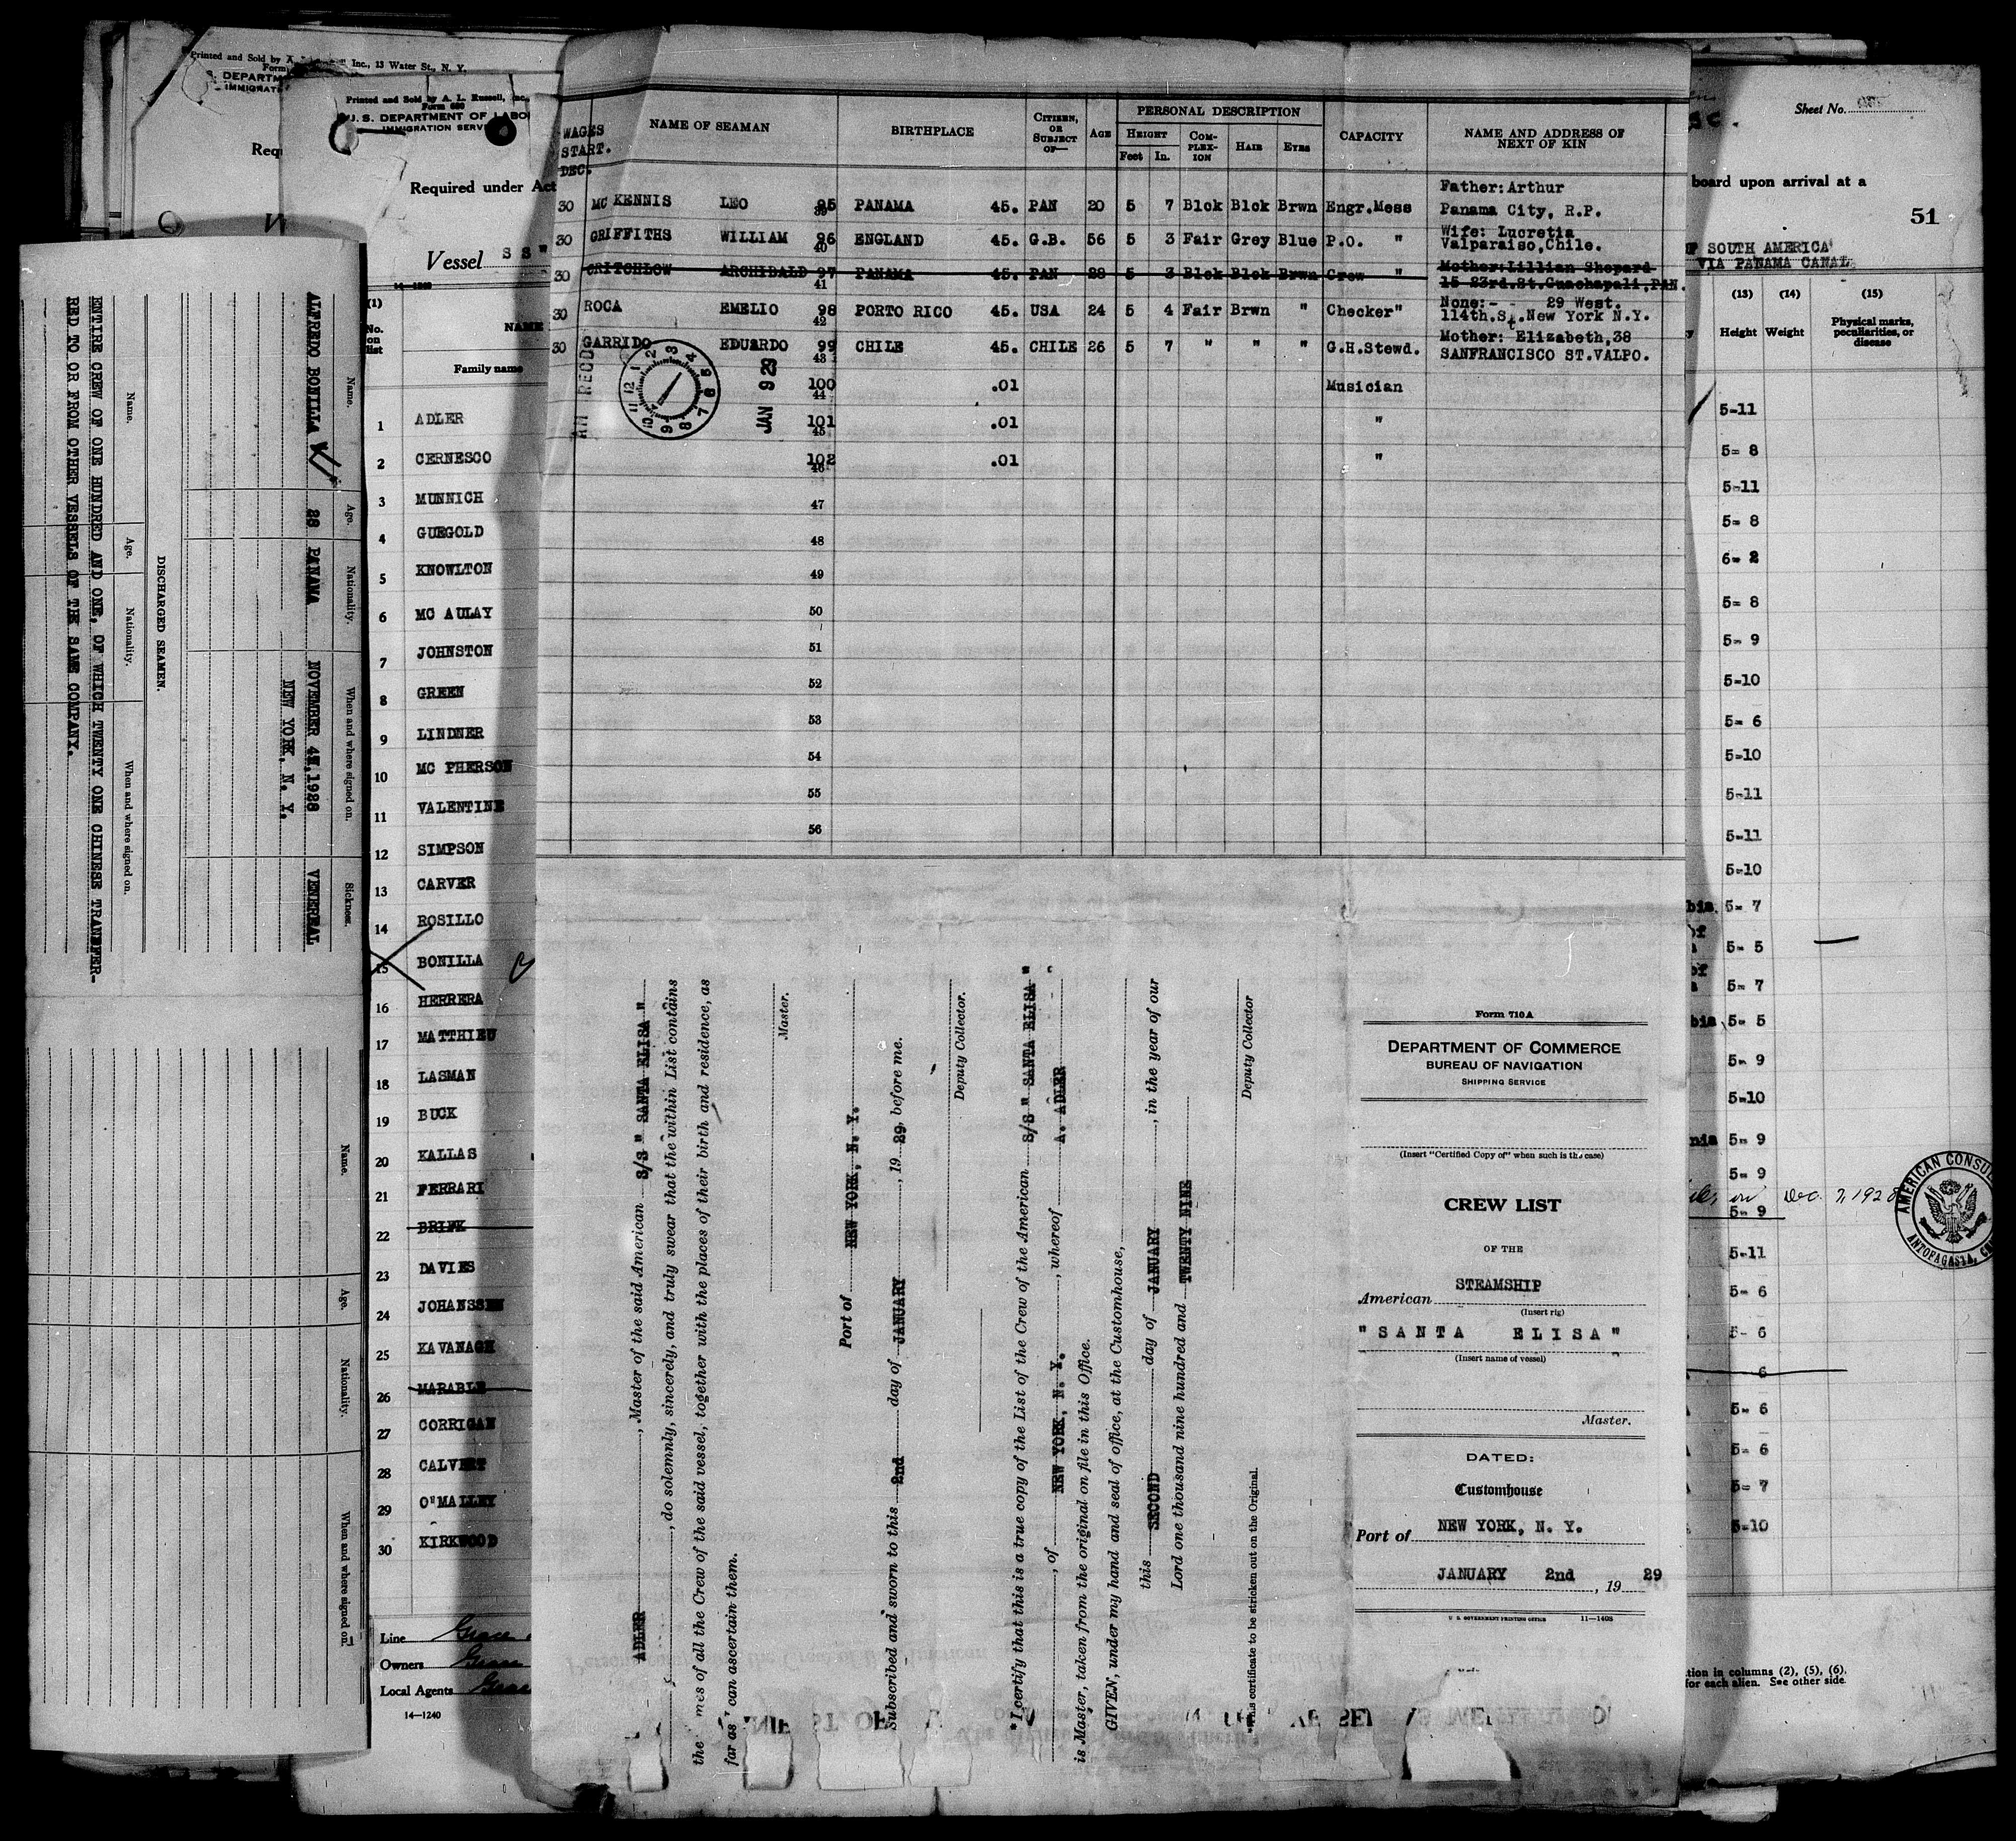 Printed and Sold by A. Inc., 13 Water St., N. Y.
Form
DEPARTM
IMMIGRATI
Requ
Printed and Sold by A. L. Russell, Inc.
Form 680
U. S. DEPARTMENT OF LABO
IMMIGRATION SERV
Required under Act
Vessel S S "
14-1240
(1)
No. on list
NAME
Family name
1 ADLER
2 CERNESCO
3 MUNNICH
4 GUEGOLD
5 KNOWLTON
6 MC AULAY
7 JOHNSTON
8 GREEN
9 LINDNER
10 MC PHERSON
11 VALENTINE
12 SIMPSON
13 CARVER
14 ROSILLO
15 BONILLA
16 HERRERA
17 MATTHIEU
18 LASMAN
19 BUCK
20 KALLAS
21 FERRARI
22 BRIFK
23 DAVIES
24 JOHANSSEN
25 KAVANAGH
26 MARABLE
27 CORRIGAN
28 CALVERT
29 O'MALLEY
30 KIRKWOOD
Line Grace
Owners Grace
Local Agents Grace
14-1240
Name. Age. Nationality. When and where signed on. Sickness.
ALFREDO BONILLA 28 PANAMA NOVEMBER 4, 1928 VENEREAL
NEW YORK, N. Y.
DISCHARGED SEAMEN.
Name. Age. Nationality. When and where signed on.
ENTIRE CREW OF ONE HUNDRED AND ONE, OF WHICH TWENTY ONE CHINESE TRANSFER-
RED TO OR FROM OTHER VESSELS OF THE SAME COMPANY.
Name. Age. Nationality. When and where signed on.
WAGES START. DEC.
NAME OF SEAMAN BIRTHPLACE CITIZEN, OR SUBJECT OF— AGE PERSONAL DESCRIPTION CAPACITY NAME AND ADDRESS OF NEXT OF KIN
HEIGHT COMPLEXION HAIR EYES
Feet In.
Father: Arthur
30 MC KENNIS LEO 95 39 PANAMA 45. PAN 20 5 7 Blck Blck Brwn Engr.Mess Panama City, R.P.
Wife: Lucretia
30 GRIFFITHS WILLIAM 96 40 ENGLAND 45. G.B. 56 5 3 Fair Grey Blue P.O. " Valparaiso,Chile.
Mother:Lillian Shepard
30 CRITCHLOW ARCHIBALD 97 41 PANAMA 45. PAN 28 5 3 Blck Blck Brwn Crew " 15 23rd.St.Guachapali,PAN.
None:- - 29 West.
30 ROCA EMELIO 98 42 PORTO RICO 45. USA 24 5 4 Fair Brwn " Checker" 114th.St.New York N.Y.
Mother: Elizabeth,38
30 GARRIDO EDUARDO 99 43 CHILE 45. CHILE 26 5 7 " " " G.H.Stewd. SANFRANCISCO ST.VALPO.
100 44 .01 Musician
101 45 .01 "
102 46 .01 "
AM RECD
12 1 2 3 4 5 6 7 8 9 10 11
JAN 9 29
47
48
49
50
51
52
53
54
55
56
ADLER, Master of the said American S/S " SANTA ELISA "
, do solemnly, sincerely, and truly swear that the within List contains
the names of all the Crew of the said vessel, together with the places of their birth and residence, as
far as I can ascertain them.
Master.
Port of NEW YORK, N. Y.
Subscribed and sworn to this 2nd day of JANUARY, 19 29, before me.
Deputy Collector.
*I certify that this is a true copy of the List of the Crew of the American S/S " SANTA ELISA "
, of NEW YORK, N. Y., whereof A. ADLER
is Master, taken from the original on file in this Office.
GIVEN, under my hand and seal of office, at the Customhouse,
this SECOND day of JANUARY, in the year of our
Lord one thousand nine hundred and TWENTY NINE
Deputy Collector
*This certificate to be stricken out on the Original.
Form 710 A
DEPARTMENT OF COMMERCE
BUREAU OF NAVIGATION
SHIPPING SERVICE
(Insert "Certified Copy of" when such is the case)
CREW LIST
OF THE
American STEAMSHIP
(Insert rig)
"SANTA ELISA"
(Insert name of vessel)
Master.
DATED:
Customhouse
Port of NEW YORK, N. Y.
JANUARY 2nd, 19 29
U. S. GOVERNMENT PRINTING OFFICE 11-1408
Sheet No.
board upon arrival at a
51
OF SOUTH AMERICA
VIA PANAMA CANAL
(13) (14) (15)
Height Weight Physical marks, peculiarities, or disease
5-11
5- 8
5-11
5- 8
6- 2
5- 8
5- 9
5-10
5- 6
5-10
5-11
5-11
5-10
bia. 5- 7
of 5- 5
of 5- 7
bia 5- 5
5- 9
5-10
nia 5- 9
5- 9
on Dec. 7, 1928
5- 9
5-11
5- 6
5- 6
6
5- 6
5- 6
5- 7
5-10
AMERICAN CONSUL
ANTOFAGASTA, CH
tion in columns (2), (5), (6).
for each alien. See other side.